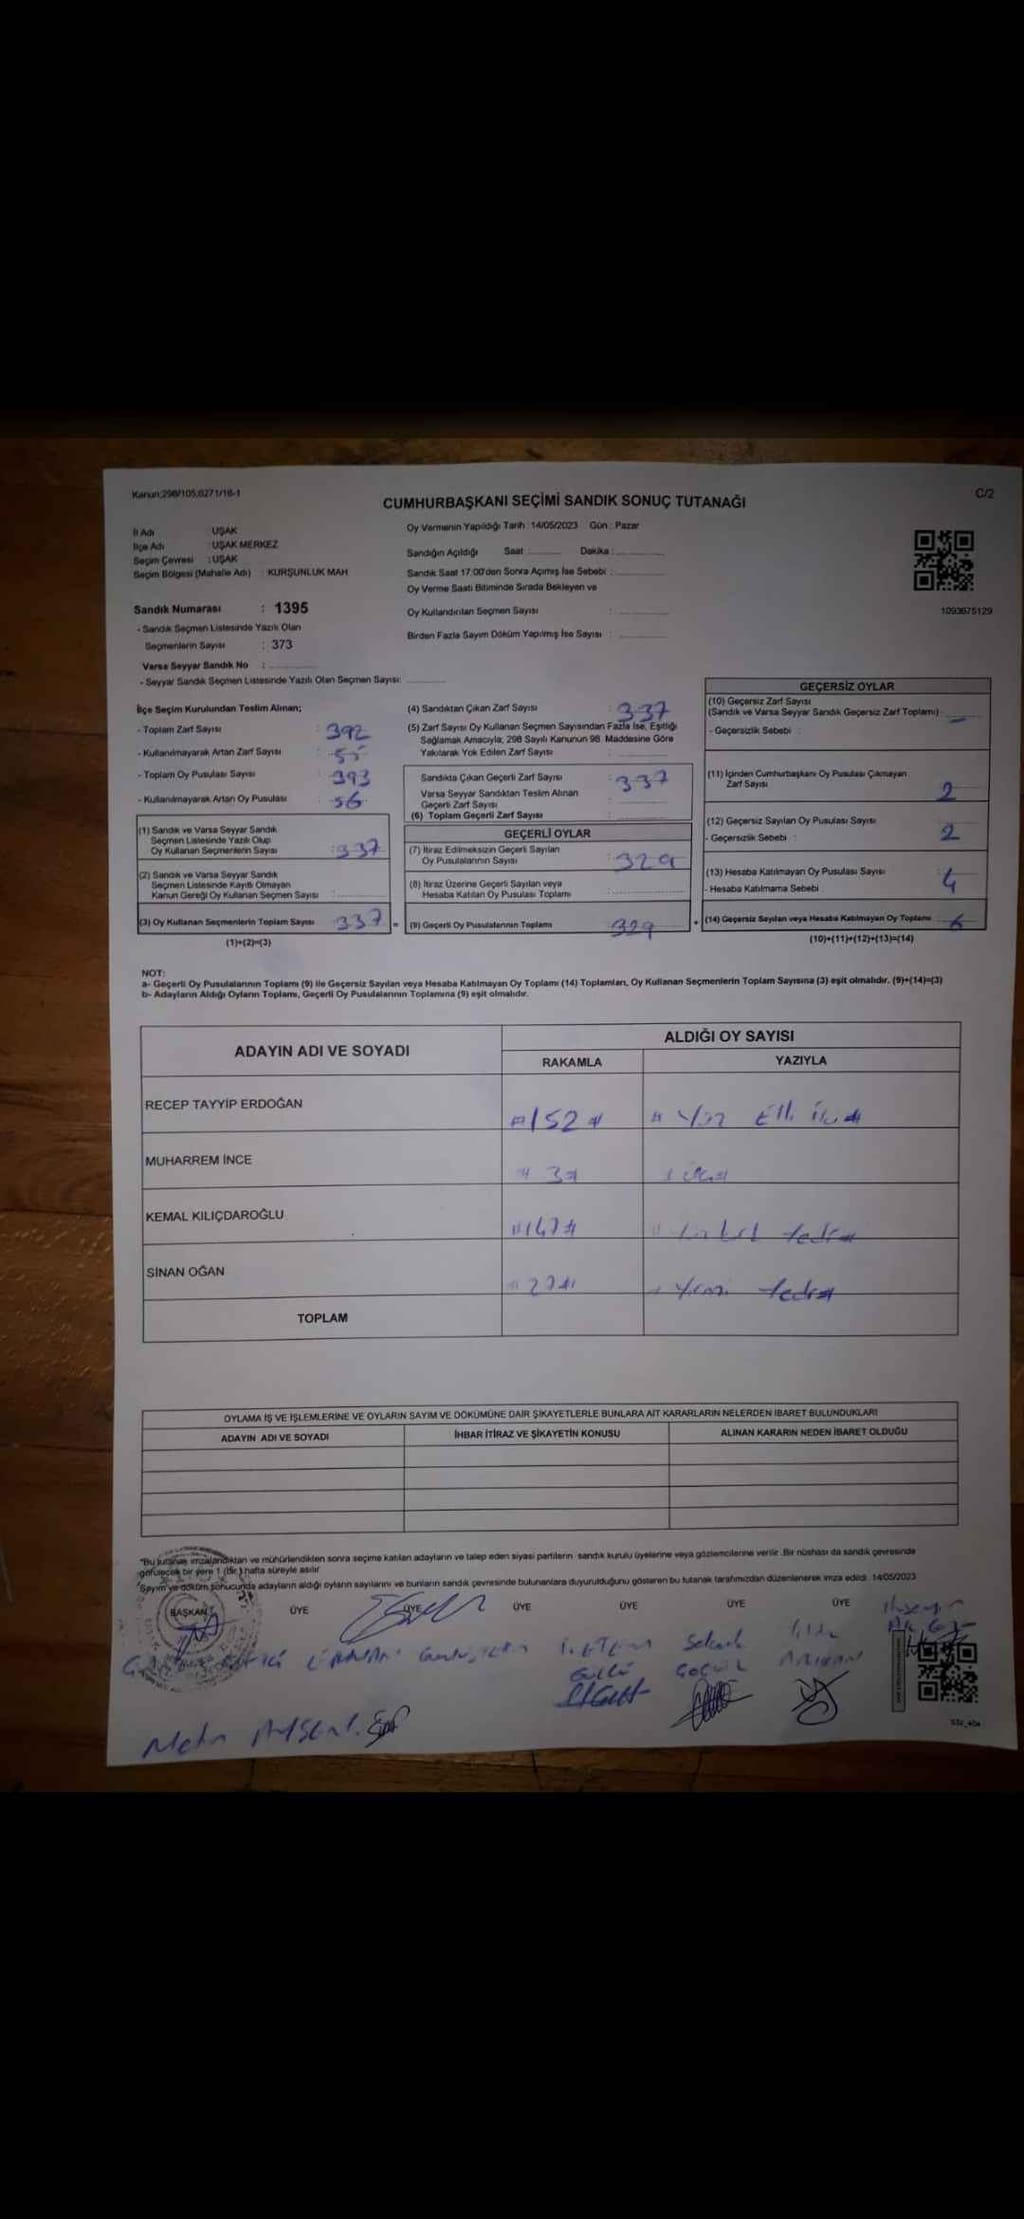 Kanun;298/105;6271/16-1
C/2
CUMHURBAŞKANI SEÇİMİ SANDIK SONUÇ TUTANAĞI
İl Adı : UŞAK
İlçe Adı : UŞAK MERKEZ
Seçim Çevresi : UŞAK
Seçim Bölgesi (Mahalle Adı) : KURŞUNLUK MAH
Oy Vermenin Yapıldığı Tarih : 14/05/2023 Gün : Pazar
Sandığın Açıldığı Saat : Dakika :
Sandık Saat 17:00'den Sonra Açımış İse Sebebi :
Oy Verme Saati Bitiminde Sırada Bekleyen ve
Oy Kullandırılan Seçmen Sayısı :
Birden Fazla Sayım Döküm Yapılmış İse Sayısı :
1093675129
Sandık Numarası : 1395
- Sandık Seçmen Listesinde Yazılı Olan
Seçmenlerin Sayısı : 373
Varsa Seyyar Sandık No :
- Seyyar Sandık Seçmen Listesinde Yazılı Olan Seçmen Sayısı:
İlçe Seçim Kurulundan Teslim Alınan;
- Toplam Zarf Sayısı : 392
- Kullanılmayarak Artan Zarf Sayısı : 55
- Toplam Oy Pusulası Sayısı : 393
- Kullanılmayarak Artan Oy Pusulası : 56
(1) Sandık ve Varsa Seyyar Sandık
Seçmen Listesinde Yazılı Olup
Oy Kullanan Seçmenlerin Sayısı : 337
(2) Sandık ve Varsa Seyyar Sandık
Seçmen Listesinde Kayıtlı Olmayan
Kanun Gereği Oy Kullanan Seçmen Sayısı :
(3) Oy Kullanan Seçmenlerin Toplam Sayısı : 337
(1)+(2)=(3)
(4) Sandıktan Çıkan Zarf Sayısı : 337
(5) Zarf Sayısı Oy Kullanan Seçmen Sayısından Fazla İse, Eşitliği
Sağlamak Amacıyla; 298 Sayılı Kanunun 98. Maddesine Göre
Yakılarak Yok Edilen Zarf Sayısı :
Sandıkta Çıkan Geçerli Zarf Sayısı : 337
Varsa Seyyar Sandıktan Teslim Alınan
Geçerli Zarf Sayısı :
(6) Toplam Geçerli Zarf Sayısı :
GEÇERLİ OYLAR
(7) İtiraz Edilmeksizin Geçerli Sayılan
Oy Pusulalarının Sayısı : 329
(8) İtiraz Üzerine Geçerli Sayılan veya
Hesaba Katılan Oy Pusulası Toplamı :
= (9) Geçerli Oy Pusulalarının Toplamı : 329 +
GEÇERSİZ OYLAR
(10) Geçersiz Zarf Sayısı
(Sandık ve Varsa Seyyar Sandık Geçersiz Zarf Toplamı) : -
- Geçersizlik Sebebi :
(11) İçinden Cumhurbaşkanı Oy Pusulası Çıkmayan
Zarf Sayısı 2
(12) Geçersiz Sayılan Oy Pusulası Sayısı
- Geçersizlik Sebebi : 2
(13) Hesaba Katılmayan Oy Pusulası Sayısı :
- Hesaba Katılmama Sebebi 4
(14) Geçersiz Sayılan veya Hesaba Katılmayan Oy Toplamı : 6
(10)+(11)+(12)+(13)=(14)
NOT:
a- Geçerli Oy Pusulalarının Toplamı (9) ile Geçersiz Sayılan veya Hesaba Katılmayan Oy Toplamı (14) Toplamları, Oy Kullanan Seçmenlerin Toplam Sayısına (3) eşit olmalıdır. (9)+(14)=(3)
b- Adayların Aldığı Oyların Toplamı, Geçerli Oy Pusulalarının Toplamına (9) eşit olmalıdır.
ADAYIN ADI VE SOYADI
ALDIĞI OY SAYISI
RAKAMLA
YAZIYLA
RECEP TAYYİP ERDOĞAN #152# # Yüz Elli İki #
MUHARREM İNCE # 3#
KEMAL KILIÇDAROĞLU #147#
SİNAN OĞAN # 27# Yirmi Yedi#
TOPLAM
OYLAMA İŞ VE İŞLEMLERİNE VE OYLARIN SAYIM VE DÖKÜMÜNE DAİR ŞİKAYETLERLE BUNLARA AİT KARARLARIN NELERDEN İBARET BULUNDUKLARI
ADAYIN ADI VE SOYADI
İHBAR İTİRAZ VE ŞİKAYETİN KONUSU
ALINAN KARARIN NEDEN İBARET OLDUĞU
*Bu tutanak imzalandıktan ve mühürlendikten sonra seçime katılan adayların ve talep eden siyasi partilerin sandık kurulu üyelerine veya gözlemcilerine verilir. Bir nüshası da sandık çevresinde
görülecek bir yere 1 (bir) hafta süreyle asılır.
*Sayım ve döküm sonucunda adayların aldığı oyların sayılarını ve bunların sandık çevresinde bulunanlara duyurulduğunu gösteren bu tutanak tarafımızdan düzenlenerek imza edildi. 14/05/2023
BAŞKAN ÜYE ÜYE ÜYE ÜYE ÜYE ÜYE
Selcuk
Metin